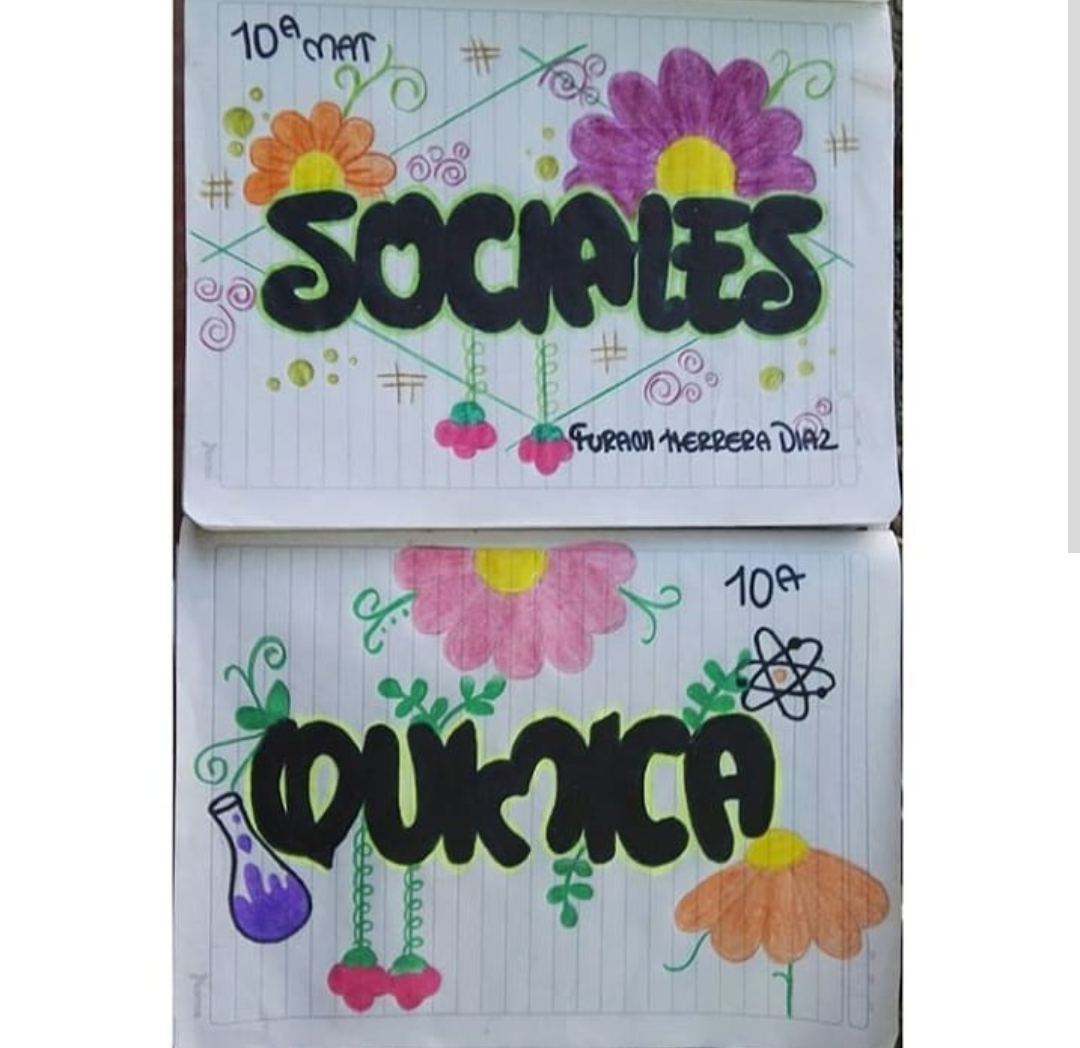 10A MAT
SOCIALES
YURANI HERRERA DIAZ
10A
QUIMICA